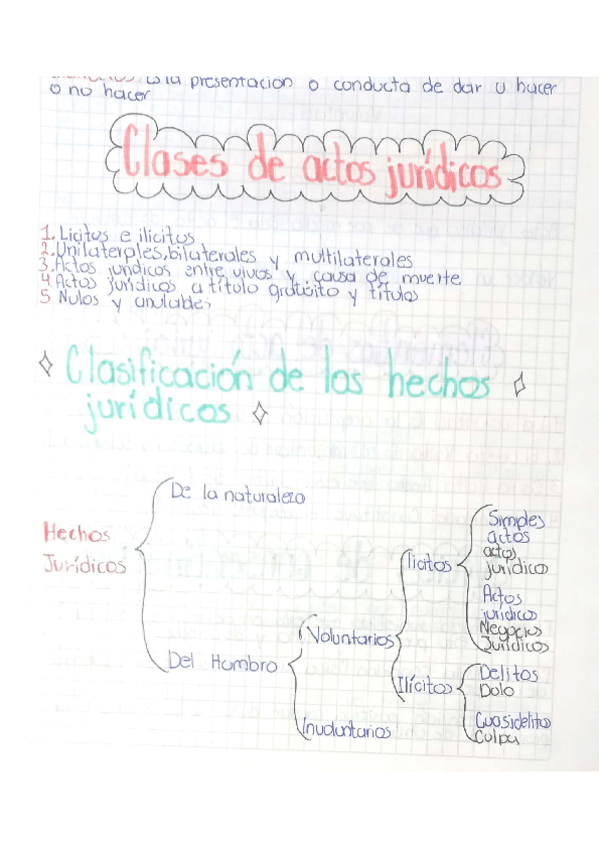 Es la presentacion o conducta de dar u hacer
o no hacer
Clases de actos jurídicos
1. Licitos e ilicitos
2. Unilaterales, bilaterales y multilaterales
3. Actos jundicos entre vivos y causa de muerte
4 Actos jurídicos a título gratúito y títulos
5 Nulos y anulables
Clasificación de los hechos
jurídicos
De la naturaleza
Hechos
Jurídicos
Del Hombro
Voluntarios
Involuntarios
licitos
Ilícitos
Simples
actos
actos
jurídicos
Actos
jurídicos
Negocios
Jurídicos
Delitos
Dolo
Cuasidelitos
Culpa